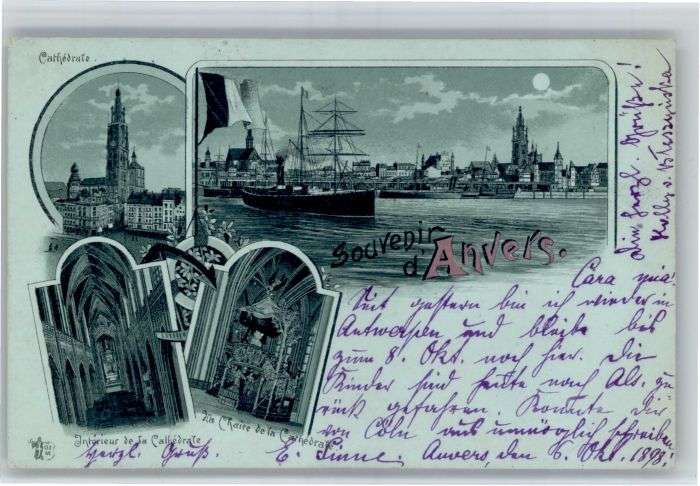 Cathédrale.
Souvenir
d'Anvers.
Intérieur de la Cathédrale
La Chaire de la Cathédrale
Cara mia!
Seit gestern bin ich wieder in
Antwerpen und bleibe bis
zum 8. Okt. noch hier. Die
Kinder sind heute nach Als. zu
rück gefahren. Konnte Dir
von Cöln aus unmöglich schreiben
herzl. Gruß. E. Anvers, den 6. Okt. 1898.
herzl. Grüße!